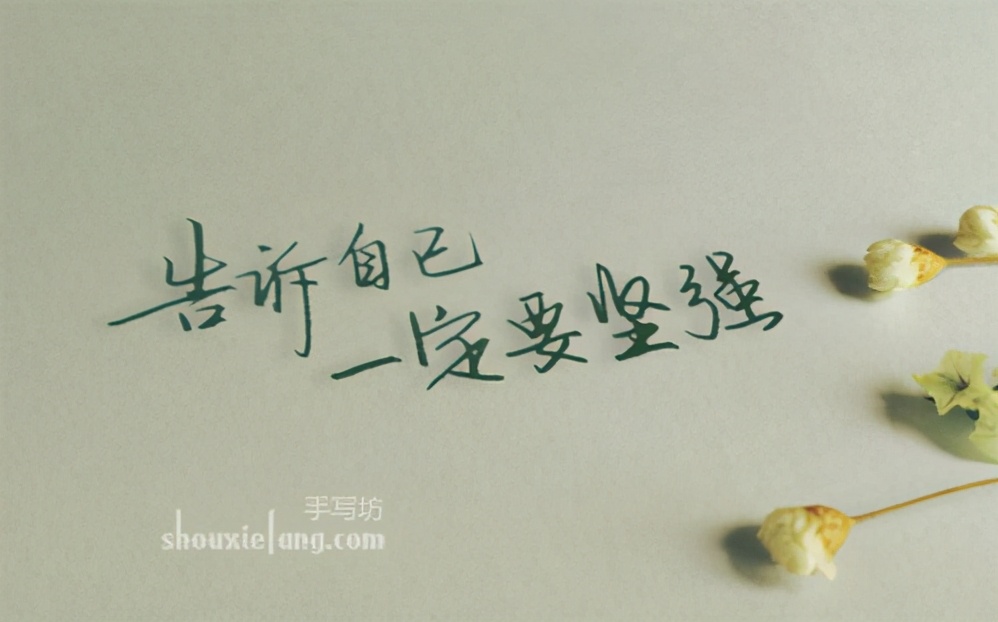 告诉自己
一定要坚强
手写坊
shouxiefang.com